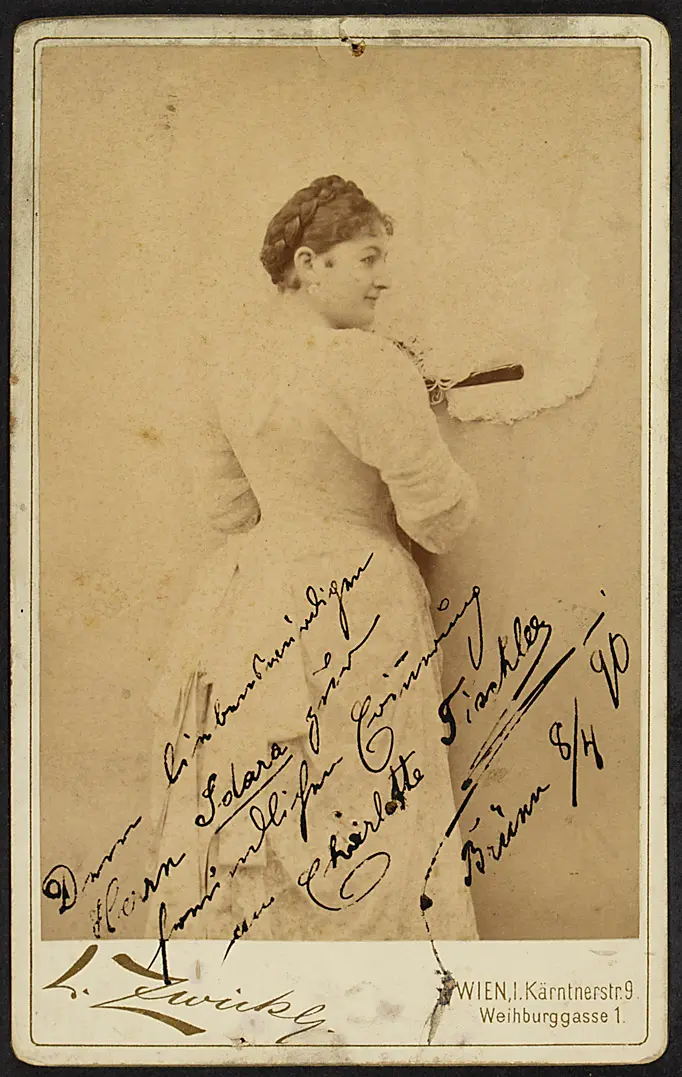 Dem liebenswürdigen
Herrn Idara zur
freundlichen Erinnerung
an Charlotte Tischler
Brünn 8/4 90
L. Zwickl
WIEN, I. Kärntnerstr. 9.
Weihburggasse 1.